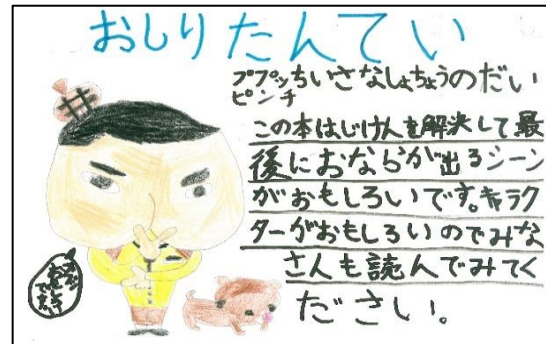 おしりたんてい
ププッちいさなしょちょうのだい
ピンチ
この本はじけんを解決して最
後におならが出るシーン
がおもしろいです。キャラク
ターがおもしろいのでみな
さんも読んでみてく
ださい。